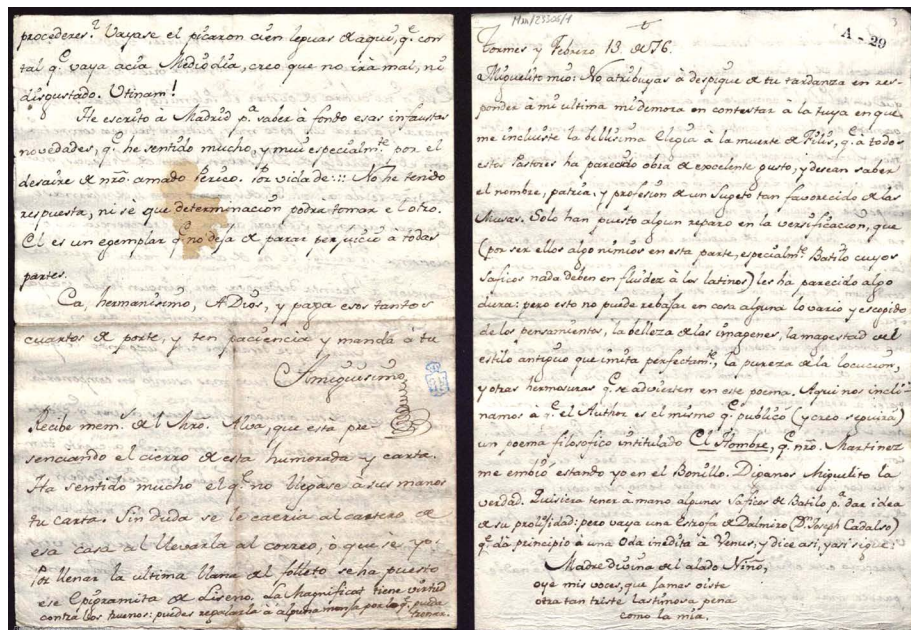 procederes.? Vayase el picaron cien leguas de aqui, q.e con
tal q.e vaya acia Mediodia, creo que no irà mal, ni
disgustado. Utinam!
He escrito à Madrid p.a saber à fondo esas infaustas
novedades, q.e he sentido mucho, y mui especialm.te por el
desaire de nrô. amado Perico. Por vida de::: No he tenido
respuesta, ni sè que determinacion podra tomar el otro.
El es un egemplar q.e no deja de parar perjuicio à todas
partes.
Ea, hermanisimo, A Dios, y paga esos tantos
cuartos de porte, y ten paciencia y manda à tu
Amiguisimo
Recibe mem.s del Mrô. Alva, que esta pre-
senciando el cierro de esta humorada y carta.
Ha sentido mucho el q.e no llegase à sus manos
tu carta. Sin duda se le caeria al cartero de
esa casa al llevarla al correo, ò que se yo.
Por llenar la ultima llana del folleto se ha puesto
ese Epigramita de Liseno. La Magnificat tiene virtud
contra los truenos: puedes regalarla à alguna monja por lo q.e pueda
tronar.
Mss/23205/1
A-29
Tormes y Febrero 13 de 76.
Miguelito mio: No atribuyas à despique de tu tardanza en res-
ponder à mi ultima mi demora en contestar à la tuya en que
me incluiste la bellisima Elegia à la muerte de Filis, q.e à todos
estos Pastores ha parecido obra de excelente gusto, y desean saber
el nombre, patria, y profesion de un Sugeto tan favorecido de las
Musas. Solo han puesto algun reparo en la versificacion, que
(por ser ellos algo nimios en esta parte, especialm.te Batilo cuyos
Saficos nada deben en fluidez à los latinos) les ha parecido algo
dura: pero esto no puede rebajar en cosa alguna lo vario y escogido
de los pensamientos, la belleza de las imagenes, la magestad del
estilo antiguo que imita perfectam.te, la pureza de la locucion,
y otras hermosuras q.e se advierten en este poema. Aqui nos incli-
namos à q.e el Author es el mismo q.e publicó (y creo seguirá)
un poema filosofico intitulado El Hombre, q.e nrô. Martinez
me embió estando yo en el Bonillo. Diganos Miguelito la
verdad. Quisiera tener à mano algunos Saficos de Batilo p.a dar idea
de su prolijidad: pero vaya una Estrofa de Dalmiro (D.n Joseph Cadalso)
q.e dà principio à una Oda inedita à Venus, y dice asi, y asi sigue:
Madre divina del alado Niño,
oye mis voces, que jamas oiste
otra tan triste lastimosa pena
como la mia.